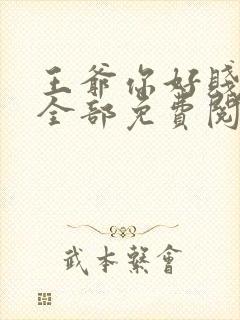 王爺你好賤
全部免費閱
武本繫會